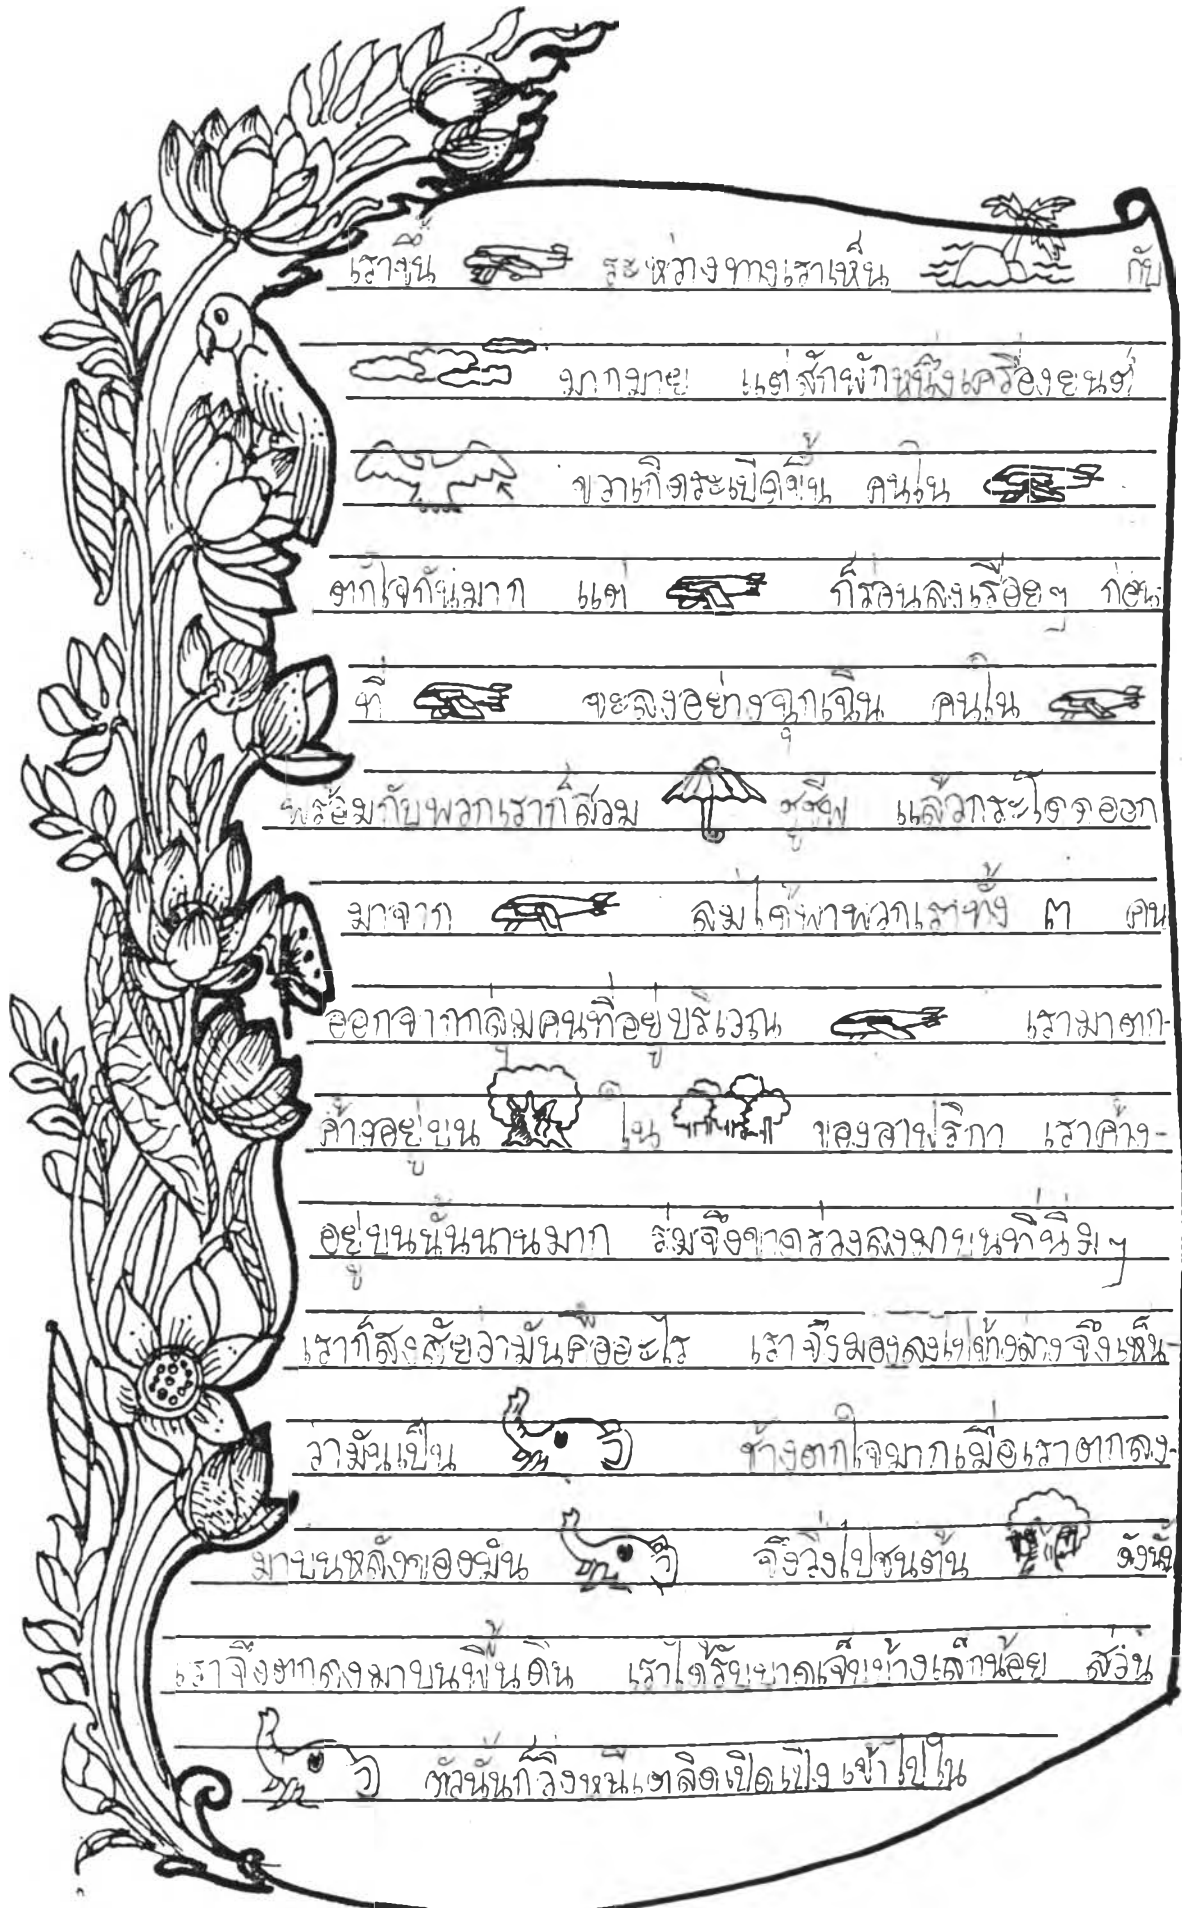 เราขึ้น ระหว่างทางเราเห็น กับ
มากมาย แต่สักพักหนึ่งเครื่องยนต์
ขวาเกิดระเบิดขึ้น คนใน
ตกใจกันมาก แต่ ก็ร่อนลงเรื่อยๆ ก่อน
ที่ จะลงอย่างฉุกเฉิน คนใน
พร้อมกับพวกเราก็สวม ชูชีพ แล้วกระโดดออก
มาจาก ลมได้พาพวกเราทั้ง ๓ คน
ออกจากกลุ่มคนที่อยู่บริเวณ เรามาตก-
ค้างอยู่บน ใน ของอาฟริกา เราค้าง-
อยู่บนนั้นนานมาก ร่มจึงขาดร่วงลงมาบนที่นิ่มๆ
เราก็สงสัยว่ามันคืออะไร เราจึงมองลงไปข้างล่างจึงเห็น-
ว่ามันเป็น ช้างตกใจมากเมื่อเราตกลง-
มาบนหลังของมัน จึงวิ่งไปชนต้น ดังนั้น
เราจึงตกลงมาบนพื้นดิน เราได้รับบาดเจ็บบ้างเล็กน้อย ส่วน
ตัวนั้นก็วิ่งหนีเตลิดเปิดเปิงเข้าไปใน